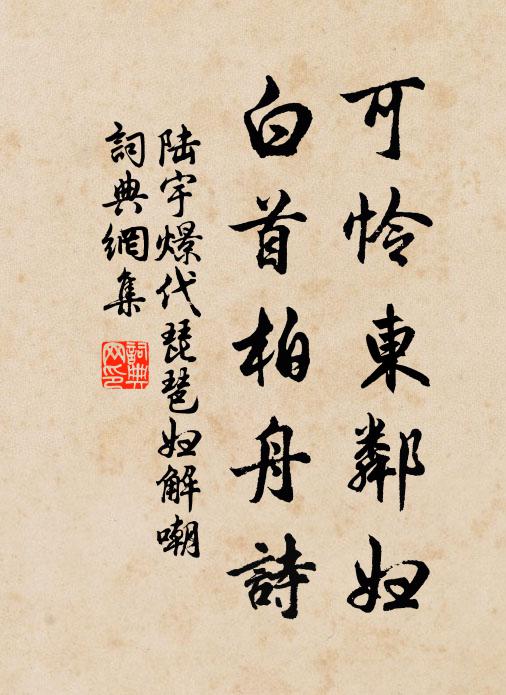 可怜東鄰妇
白首柏舟詩
陆宇燝代琵琶妇解嘲
詞典網集
詞典網印